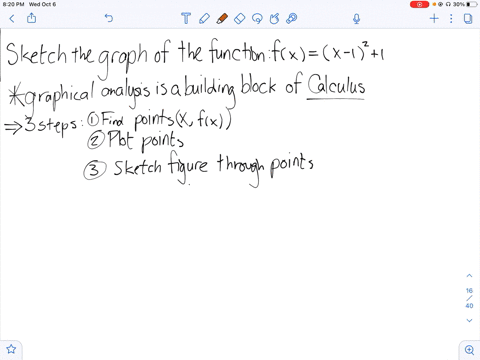 8:20 PM Wed Oct 6
30%
Sketch the graph of the function: f(x) = (x-1)² + 1
*graphical analysis is a building block of Calculus
⇒ 3 steps: ① Find points (x, f(x))
② Plot points
③ Sketch figure through points
16
/
40